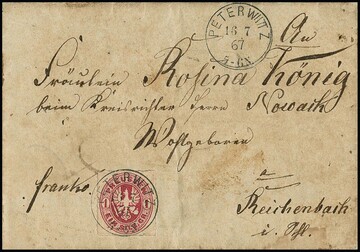 PETERWITZ
16 7
67
5-6N
An
Fräulein Rosina König
beim Kreisrichter Herrn Nowack
Wohlgeboren
franko.
PETERWITZ
1 1
a/
Reichenbach
i. Schl.